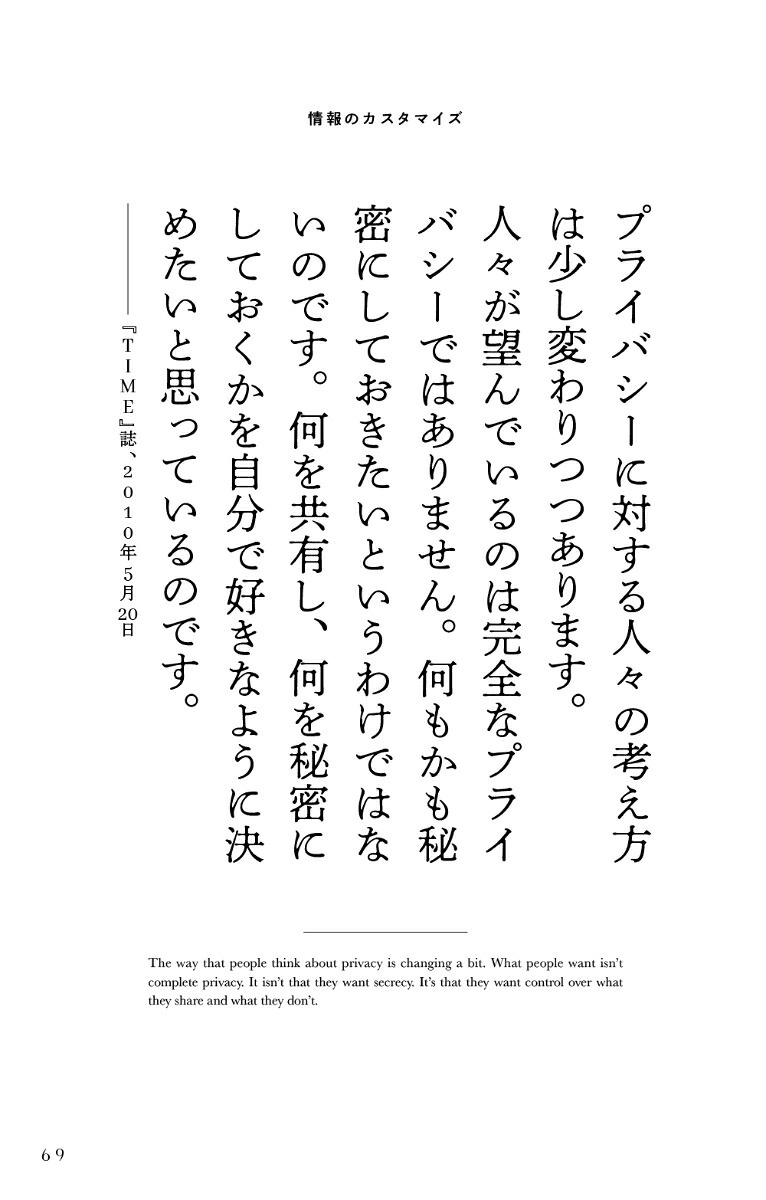 情報のカスタマイズ
プライバシーに対する人々の考え方
は少し変わりつつあります。
人々が望んでいるのは完全なプライ
バシーではありません。何もかも秘
密にしておきたいというわけではな
いのです。何を共有し、何を秘密に
しておくかを自分で好きなように決
めたいと思っているのです。
――『TIME』誌、2010年5月20日
The way that people think about privacy is changing a bit. What people want isn’t
complete privacy. It isn’t that they want secrecy. It’s that they want control over what
they share and what they don’t.
69